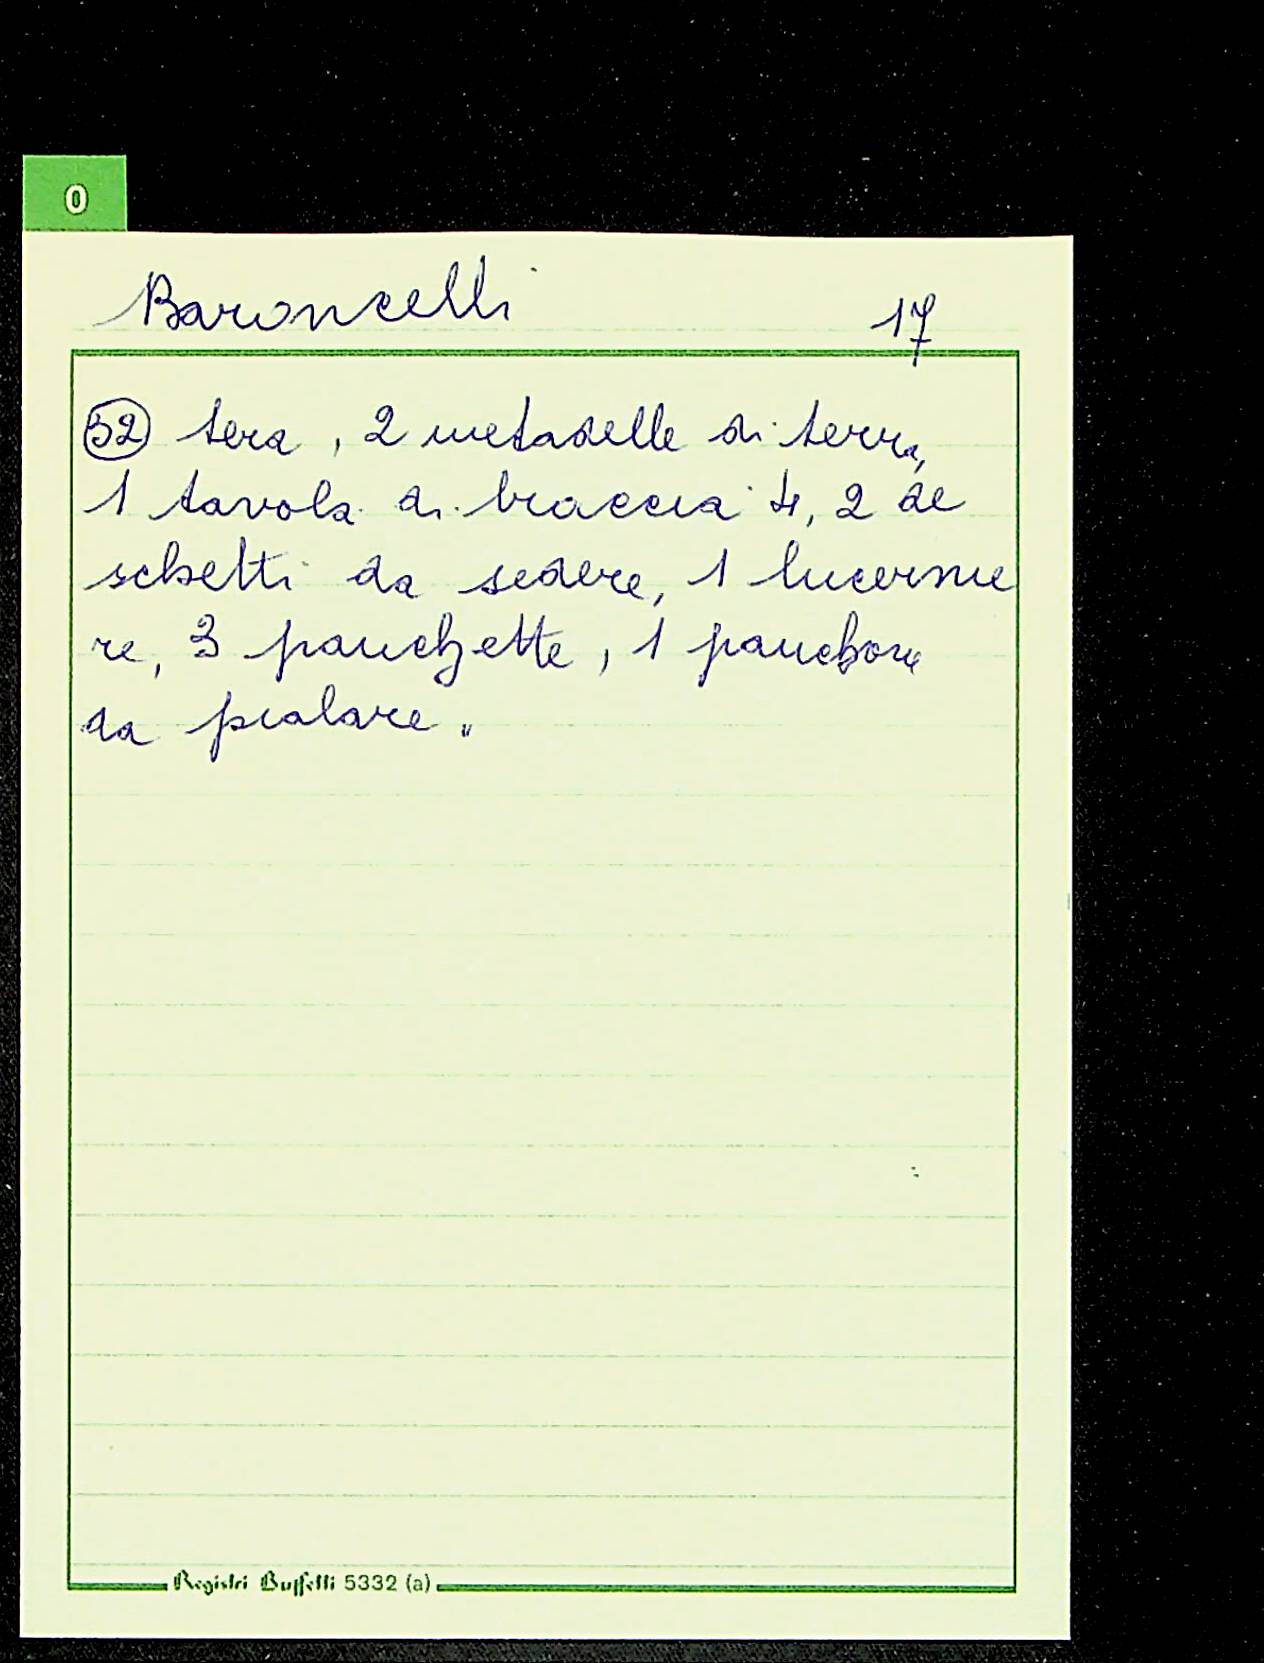 0
Baroncelli 17
52 tera, 2 metadelle di terra,
1 tavola di braccia 4, 2 de
schetti da sedere, 1 lucernie
re, 3 panchette, 1 panchone
da pialare "
Registri Buffetti 5332 (a)